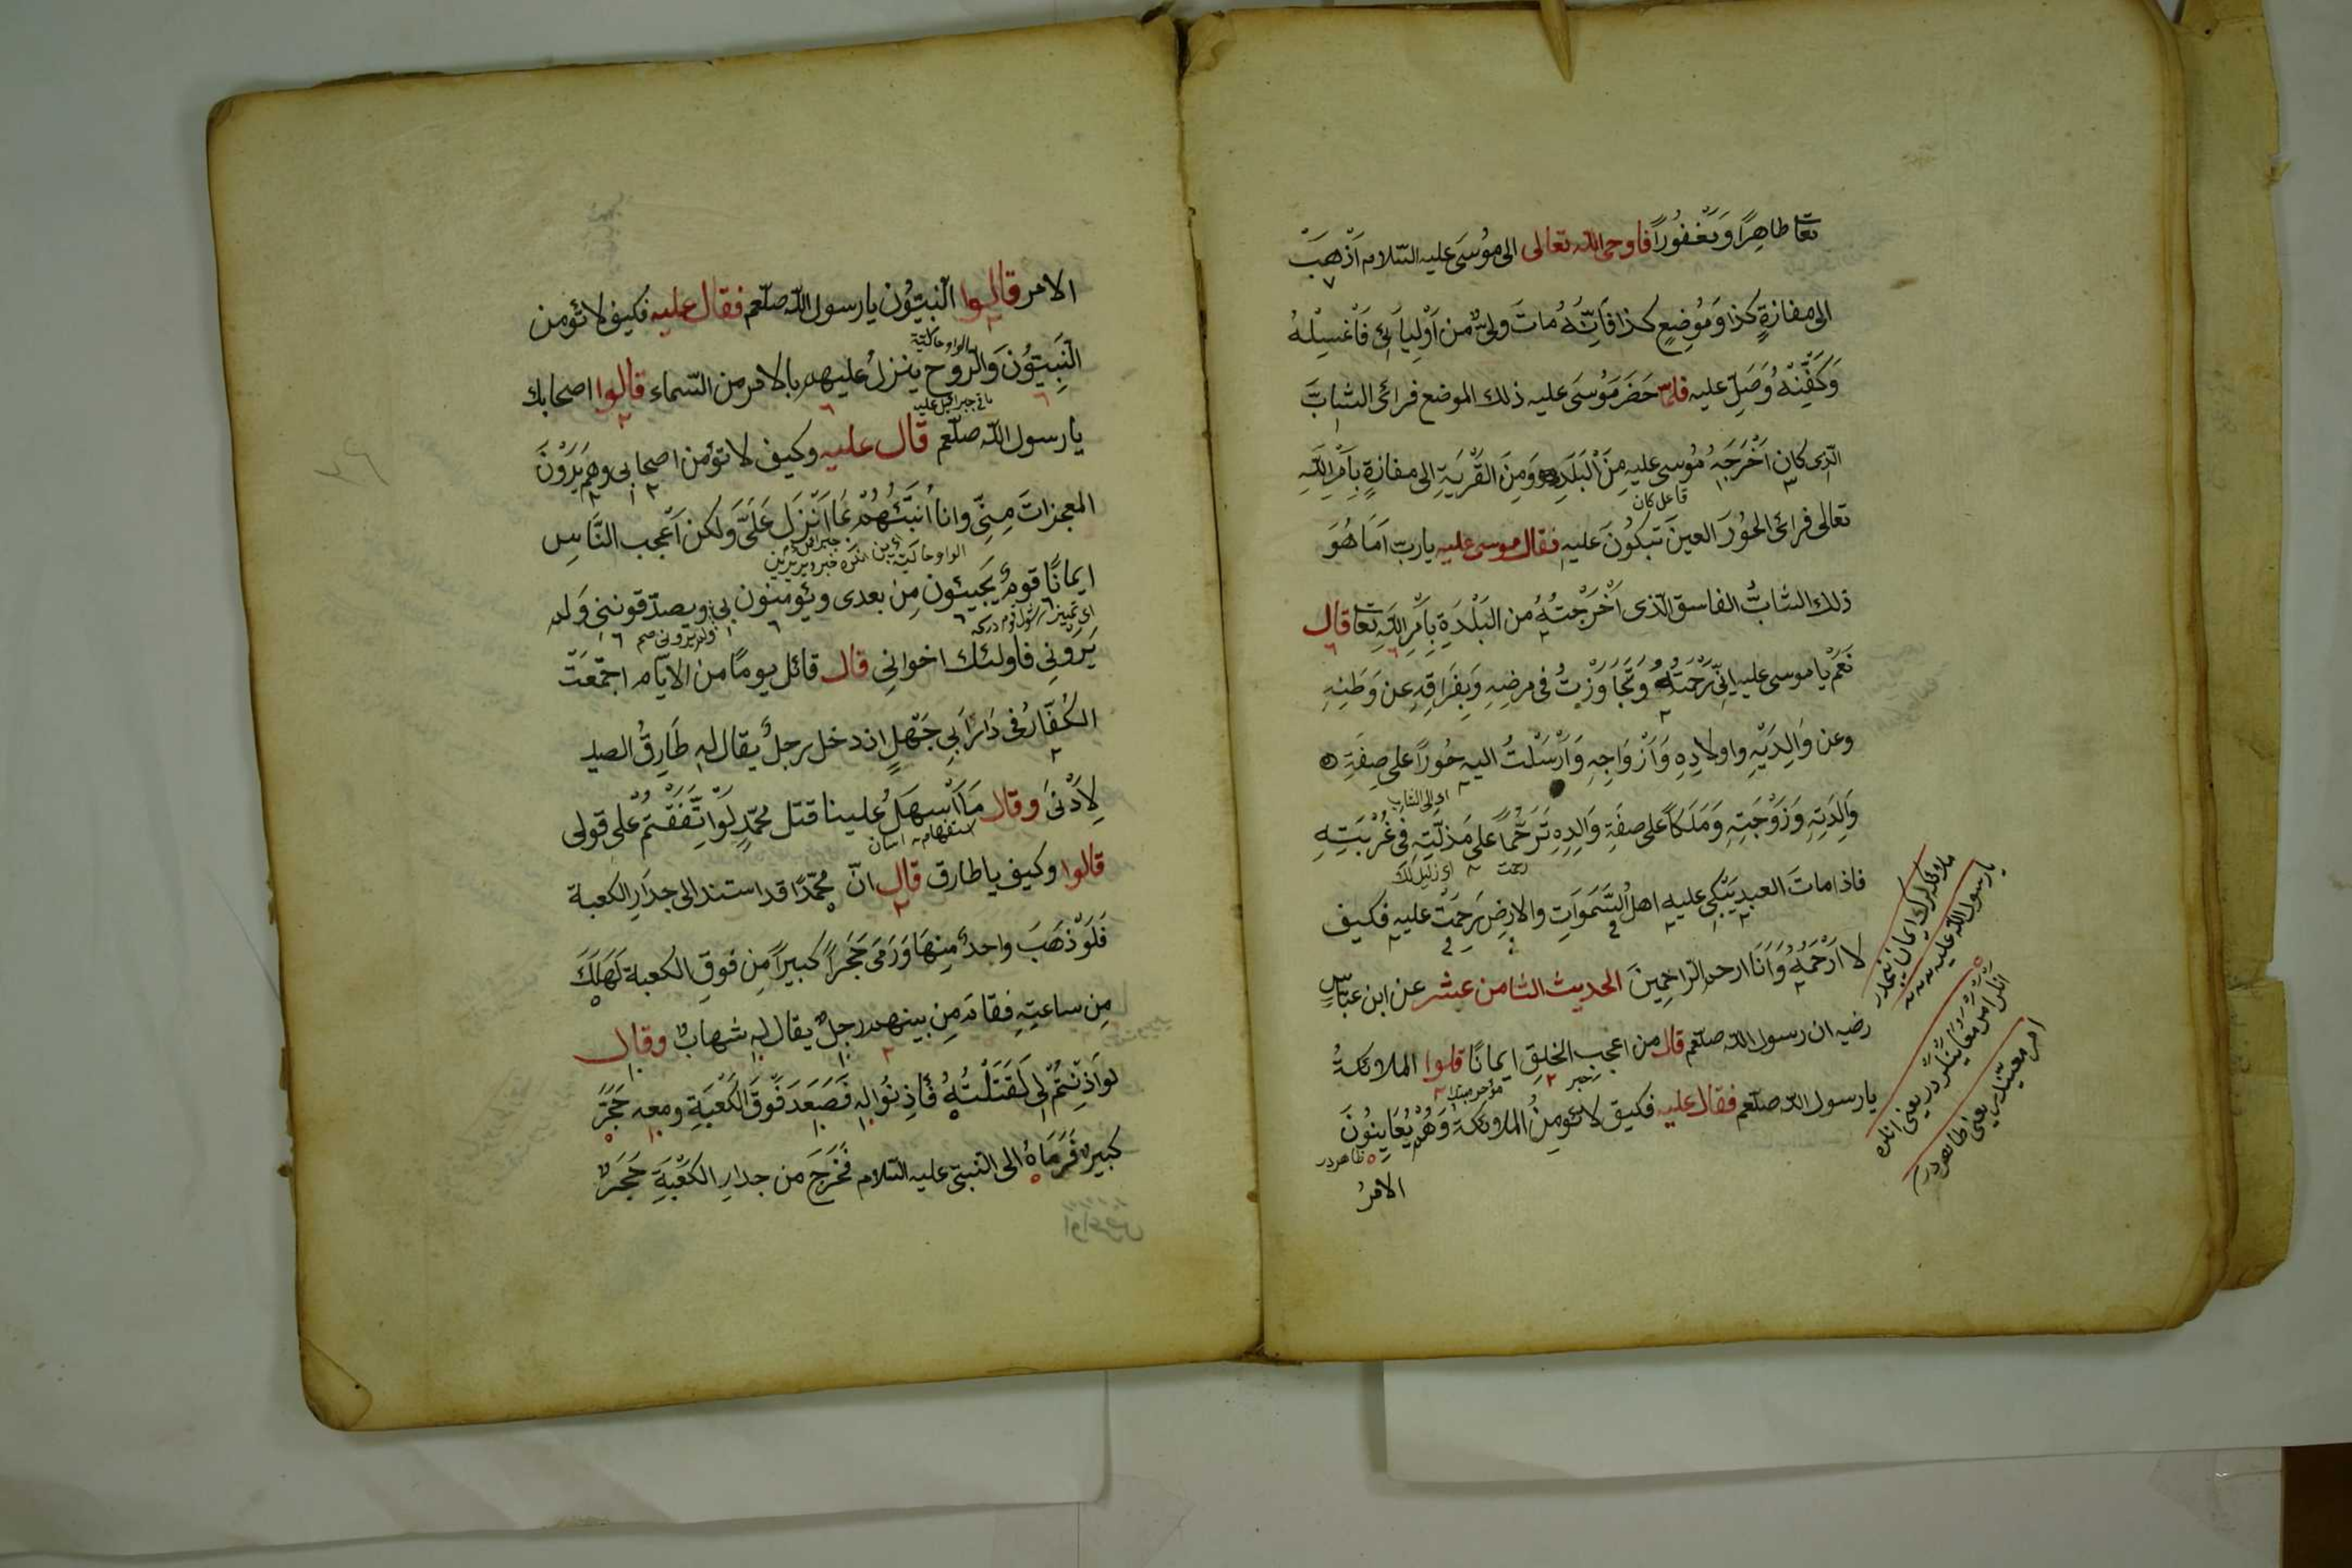 تعا طاهِرًا وَمَغْفُورًا فاوحى اللّه تعالى الى مُوسَى عليه السّلام اَذْهَبْ
الى مفازةٍ كذا وَمَوْضِعٍ كذا فَاِنَّهُ مُاتَ ولىٌّ من اَوْلِيَائى فَاْغْسِلْهُ
وَكَفِّنْهُ وَصَلِّ عليه فلمّا حَضَرَ مَوُسَى عليه ذلك الموضع فرائى الشابَّ
الّذى كان اَخْرَجَهُ مُوسى عليه مِنَ الْبَلَدِ وَمِنَ القَرْيَةِ الى مفازةٍ بِاَمْرِ اللّهِ
فاعل كان
تعالى فرائى الحُورَ العينَ تَبكُونَ عليه فقال موسى عليه يا ربّ اَمَا هُوَ
ذلك الشابُّ الفاسق الّذى اَخْرَجْتُهُ من البَلْدَةِ بِاَمْرِ اللّهِ تعا قال
نَعَمْ يا موسى عليه اِنّى رَحْمَتُهُ وَتَجَاوَزْتُ فى مرضِهِ وَبِفَرَاقِهِ عن وَطَنِهِ
وعن وَالِدَيْهِ واولادِهِ وَاَزْوَاجِهِ وَاَرْسَلْتُ اليهِ حُورًا على صِفَةِ
اى الى الشاب
وَالِدَتِهِ وَزَوْجَتِهِ وَمَلَكًا على صفَةِ وَالِدِهِ تَرَحُّمًا على مَذَلَّتِهِ فى غُرْبَتِهِ
رحمت اى ذليل لك
فاذا ماتَ العبد يَبْكى عليه اهلُ السَّمَواَتِ والارضِ يَرحِمَتْ عليه فكيف
لا اَرْحَمُهُ وَاَنَا ارحم الرّاحِمِينَ الحديث الثامن عشر عن ابن عبّاسٍ
رضيه ان رسول اللّه صلّعم قال من اعجب الخلق ايمانًا قلوا الملائكةُ
خبر مؤخر مبتدا
يا رسول اللّه صلّعم فقال عليه فكيق لا تؤمِنُ الملائكة وَهُمْ يُعَايِنُونَ
ظاهردر
الامرُ
ملائكه لرك ايمان نيچه در
يا رسول اللّه عليه
انلر امرى معاينلر در يعنى انلره
امر معيّنلدر يعنى ظاهردر
الامر قالوا النّبيّوُن يا رسول اللّه صلّعم فقال عليه فكيف لا تؤمن
الواو حاليّة
النَّبِيّوُنَ وَالرّوح ينزلُ عليهم بالامر من السّماء قالوا اصحابك
يا رسول اللّه صلّعم قال عليه وكيف لا تؤمن اصحابى وهم يَرَوْنَ
المعجزاتَ مِنِّى وانا اُنَبِّئُهُمْ بما اَنْزَلَ عَلَىَّ ولكن اَعْجب النَّاسِ
ايمانًا قومٌ يَجيئون مِنْ بعدى ويُؤمنون بى ويصدّقوننى وَلم
يَرَوْنِى فاولئك اخوانى قال قائل يومًا من الايّام اجتَّمَعَتْ
الكُفّارُ فى دَارِ اَبى جَهْلٍ اذ دخل رجلٌ يقال له طَارِقُ الصيد
لِاَدْنىَ وقال مَا اَسْهَلُ علينا قتل محمّدٍ لَوْ اتَّفَقْتُمْ على قولى
استفهام اسان
قالوا وكيف يا طارق قال انّ محمّدًا قد استند الى جدَارِ الكعبة
فَلَوْ ذَهَبَ واحدٌ مِنهَا وَرَمَى حَجَرًا كبيرًا مِن فوقِ الكعبة لَهَلَكَ
مِن ساعتِهِ فقام مِن بينهم رجلٌ يقال له شهابٌ وقال
لو اَذِنْتُمْ لى لَقَتَلْتُهُ فَأذِنُوا له فَصَعَدَ فَوقَ الكَعْبَةِ ومعه حَجَرٌ
كبيرٌ فَرَمَاهُ الى النّبىّ عليه السّلام فَخَرَجَ من جدارِ الكَعْبَةِ حَجَرٌ